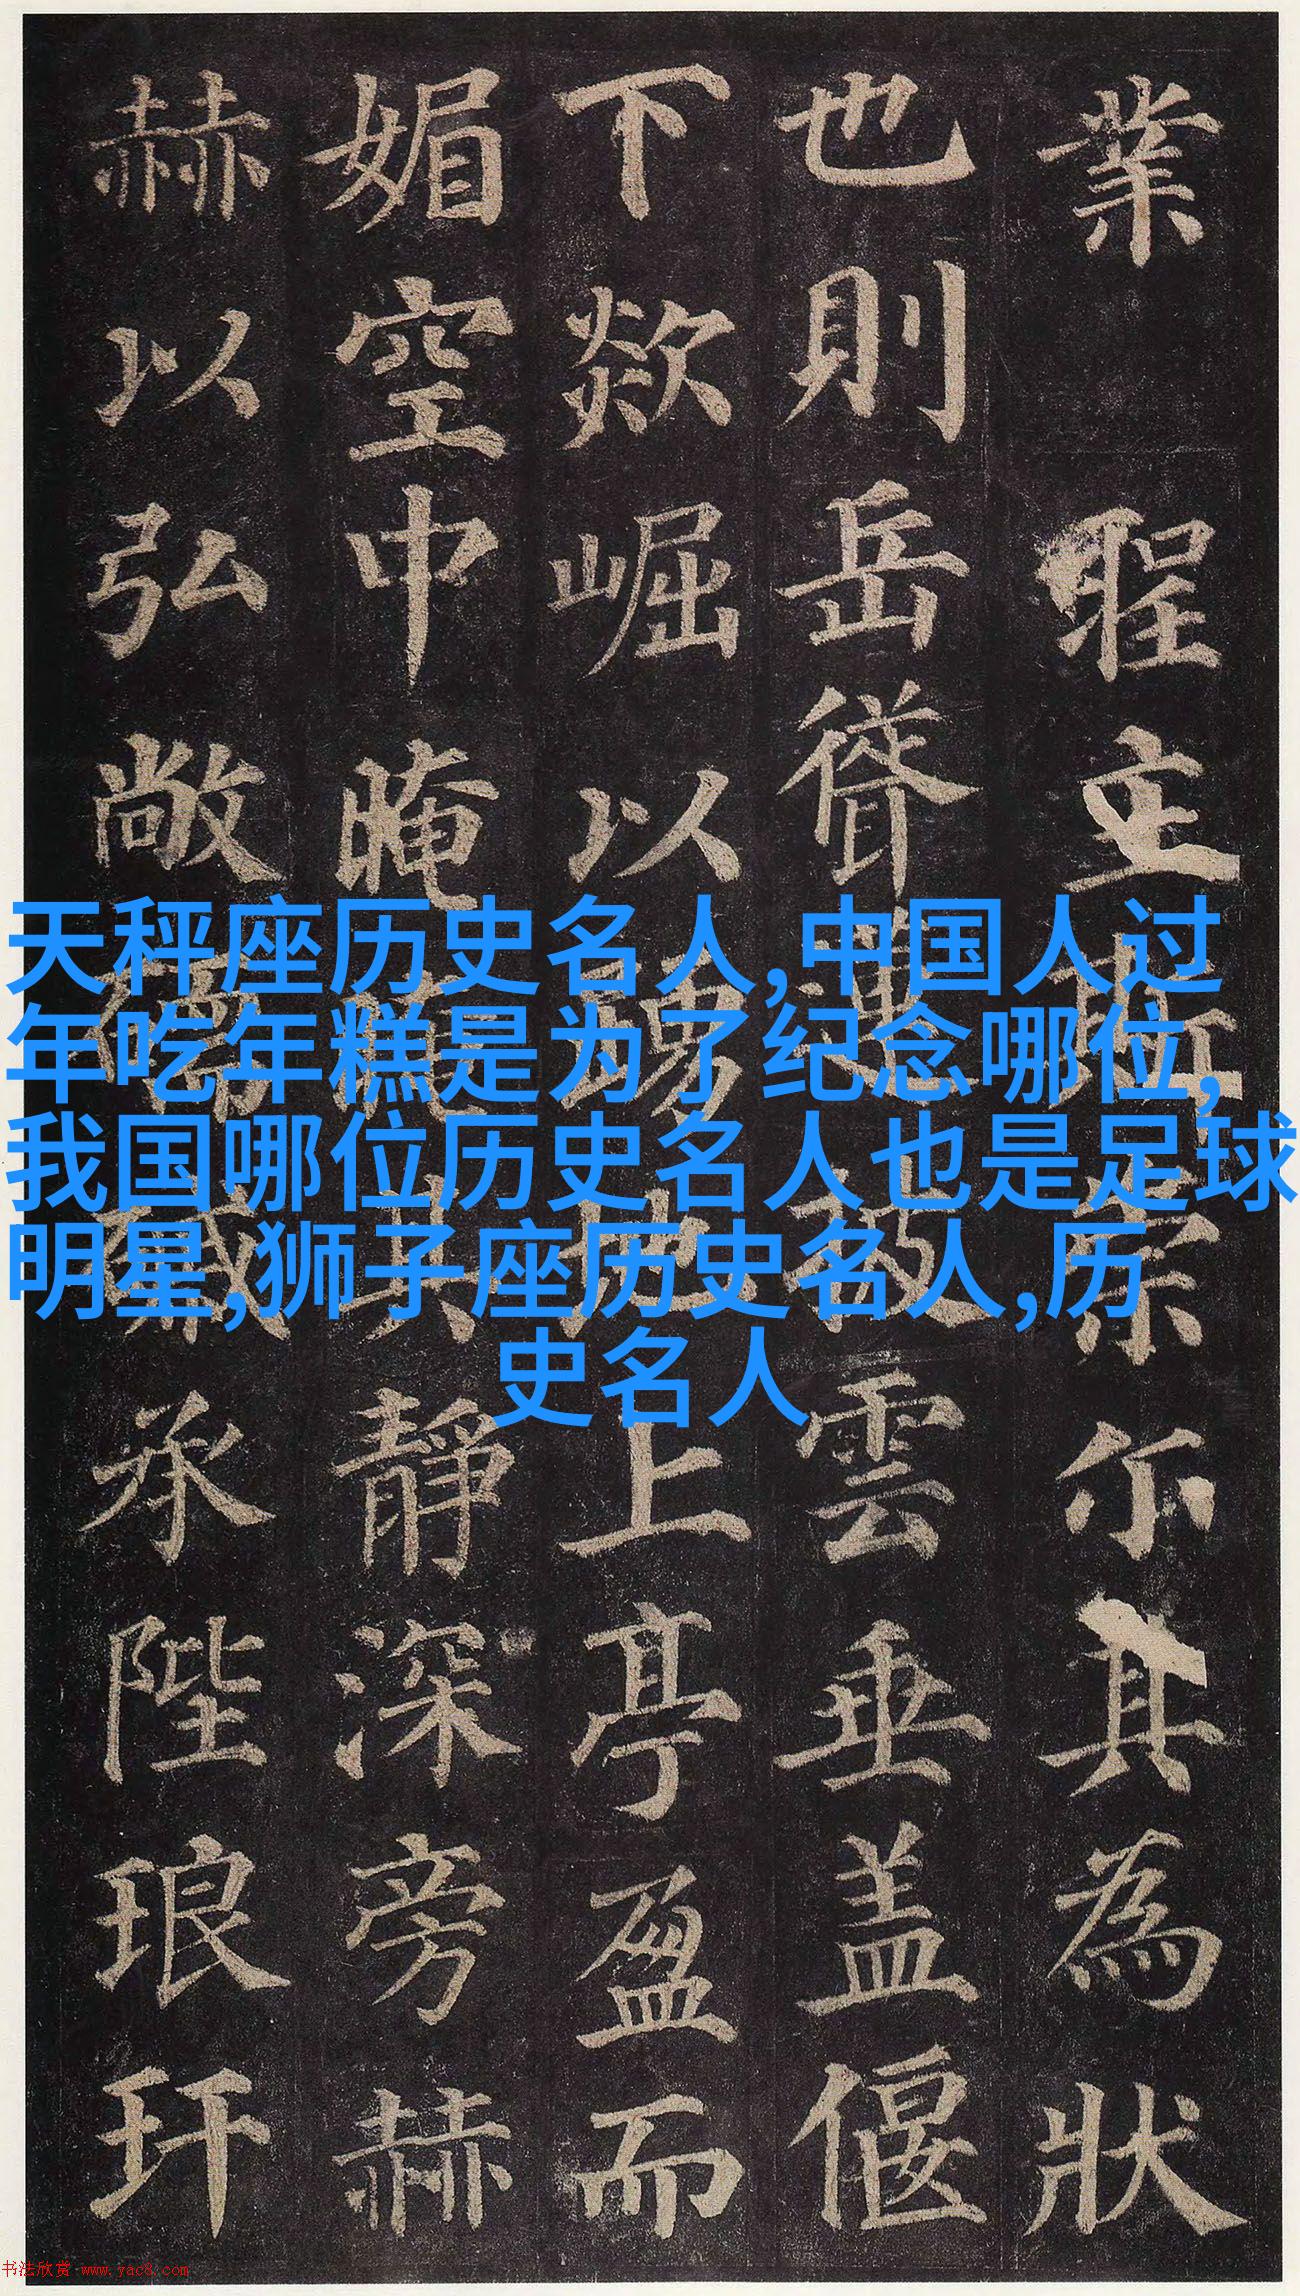 業聖立尓其為狀
也則岳聳披雲垂盖偃
下欻崛以踴地上亭盈而
媚空中晻其靜深旁赫
赫以弘敞承陛琅玕
天秤座历史名人,中国人过
年吃年糕是为了纪念哪位,
我国哪位历史名人也是足球
明星,狮子座历史名人,历
史名人
书法欣赏 www.yac8.com